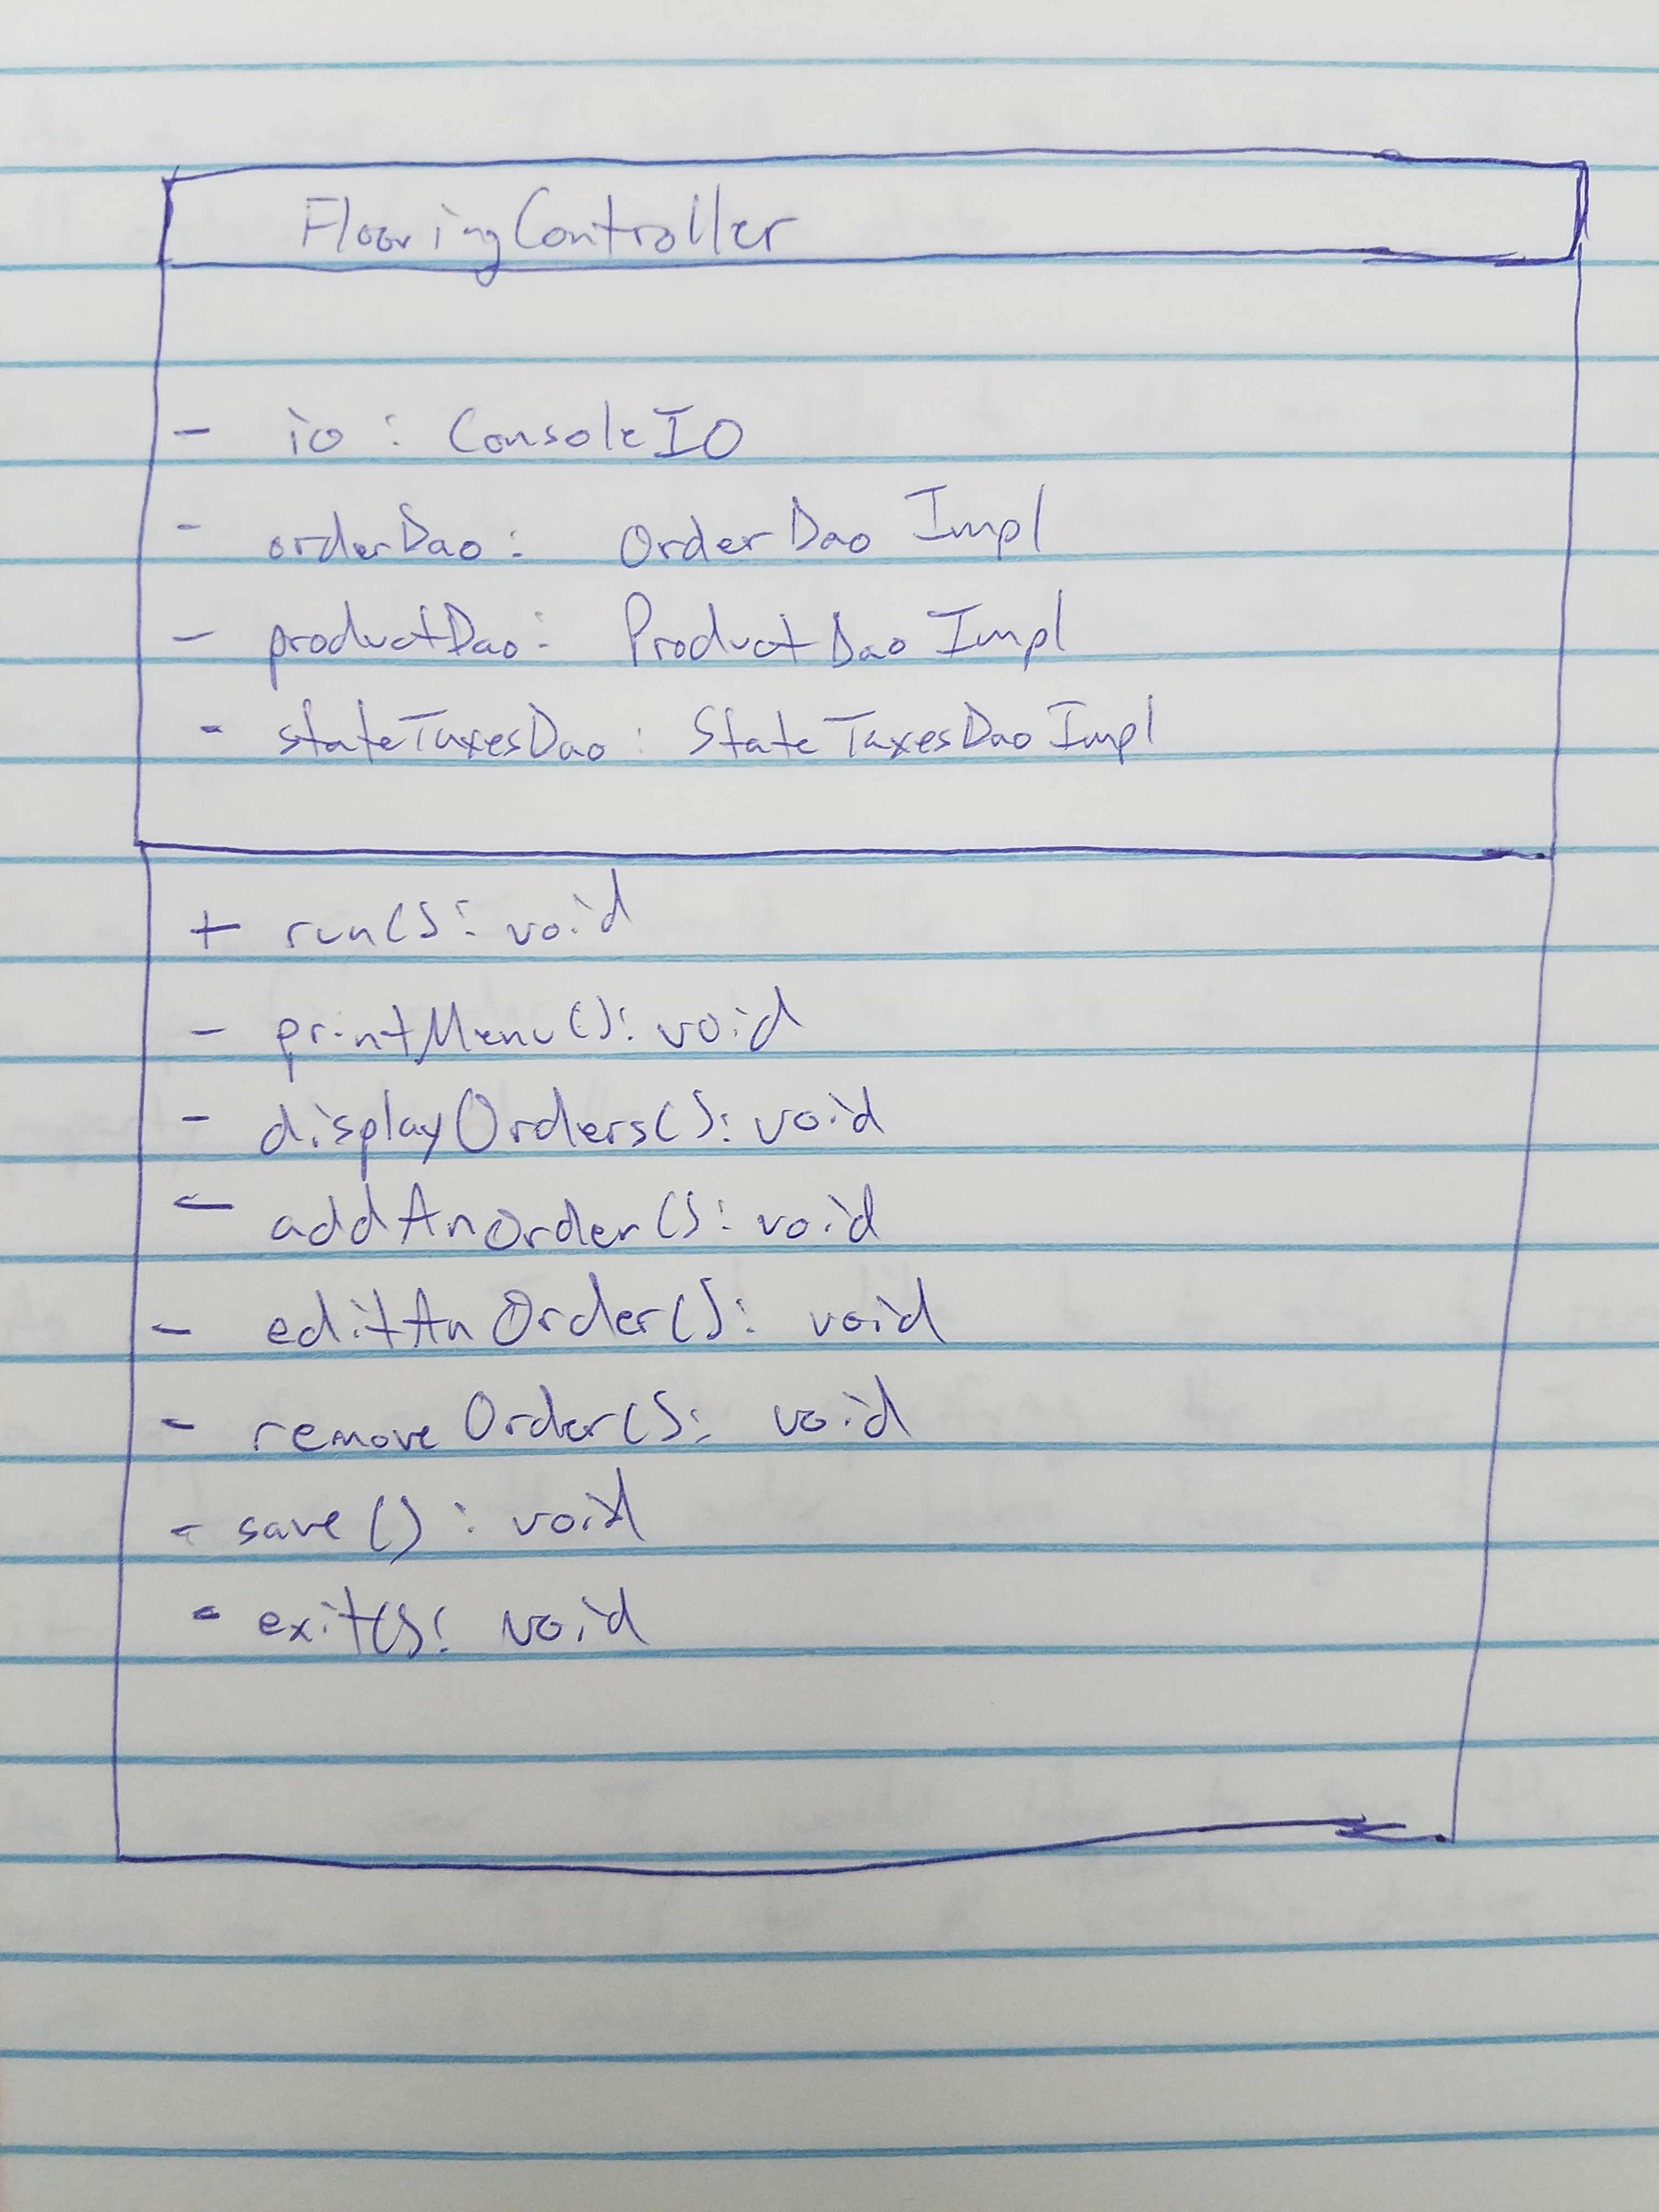 FlooringController
- io : ConsoleIO
- orderDao : OrderDaoImpl
- productDao : ProductDaoImpl
- stateTaxesDao : StateTaxesDaoImpl
+ run() : void
- printMenu() : void
- displayOrders() : void
- addAnOrder() : void
- editAnOrder() : void
- removeOrder() : void
- save() : void
- exit() : void